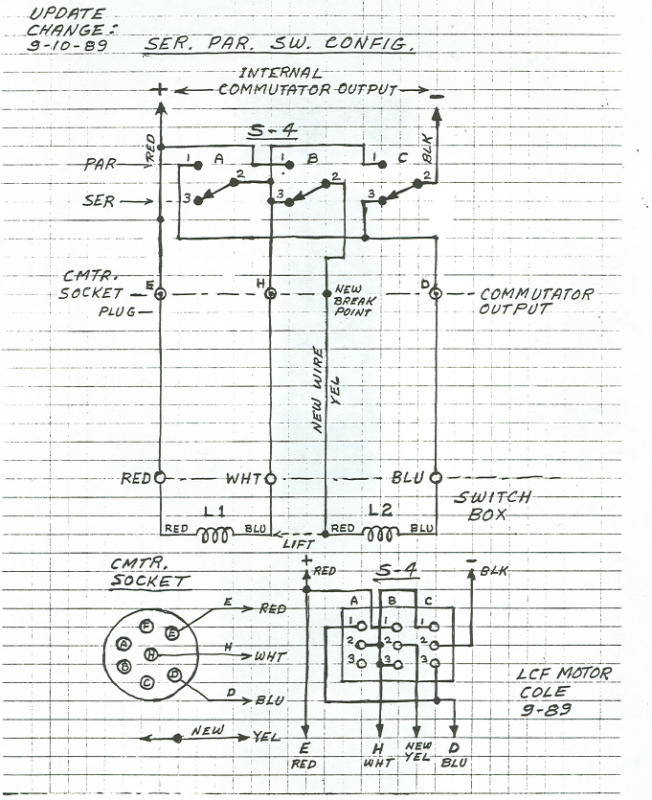 UPDATE
CHANGE:
9-10-89
SER. PAR. SW. CONFIG.
INTERNAL
+ COMMUTATOR OUTPUT -
RED
S-4
BLK
PAR 1 A 1 B 1 C
2 2 2
SER 3 3 3
CMTR.
SOCKET
PLUG
E
H
NEW
BREAK
POINT
D
COMMUTATOR
OUTPUT
NEW WIRE
YEL
RED
WHT
BLU
SWITCH
BOX
L1
L2
RED BLU
LIFT
RED BLU
CMTR.
SOCKET
F
E
A
H
B
D
C
E RED
H WHT
D BLU
NEW YEL
+
RED
S-4
-
BLK
A B C
1 1 1
2 2 2
3 3 3
E
RED
H
WHT
NEW
YEL
D
BLU
LCF MOTOR
COLE
9-89